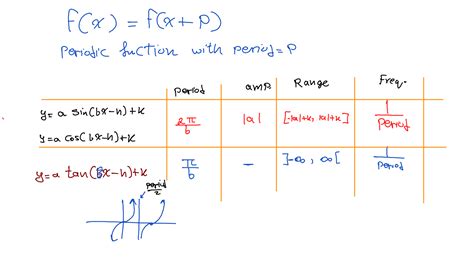 f(x) = f(x+p)
Periodic function with period = P
period amp Range Freq.
y = a sin(bx-h)+k
y = a cos(bx-h)+k
2π/b |a| [-|a|+k, |a|+k] 1/Period
y = a tan(bx-h)+k π/b — ]-∞, ∞[ 1/Period
period/2